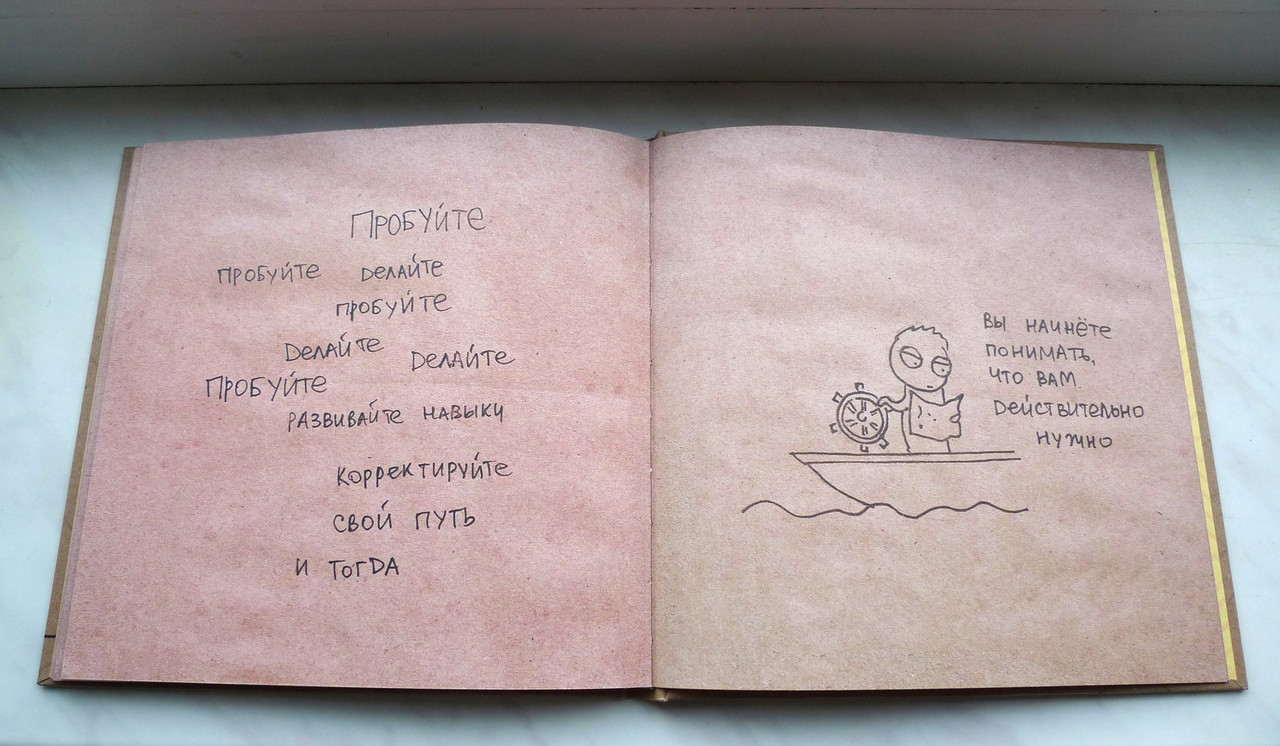 ПРОБУЙТЕ
ПРОБУЙТЕ ДЕЛАЙТЕ
ПРОБУЙТЕ
ДЕЛАЙТЕ ДЕЛАЙТЕ
ПРОБУЙТЕ
РАЗВИВАЙТЕ НАВЫКИ
КОРРЕКТИРУЙТЕ
СВОЙ ПУТЬ
И ТОГДА
ВЫ НАЧНЁТЕ
ПОНИМАТЬ,
ЧТО ВАМ
ДЕЙСТВИТЕЛЬНО
НУЖНО